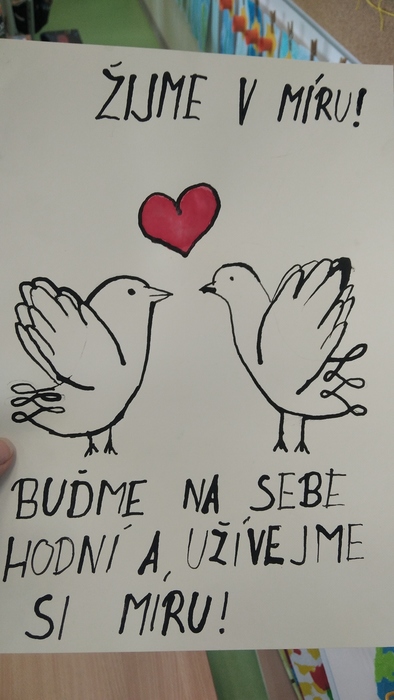 ŽIJME V MÍRU!
BUĎME NA SEBE
HODNÍ A UŽÍVEJME
SI MÍRU!